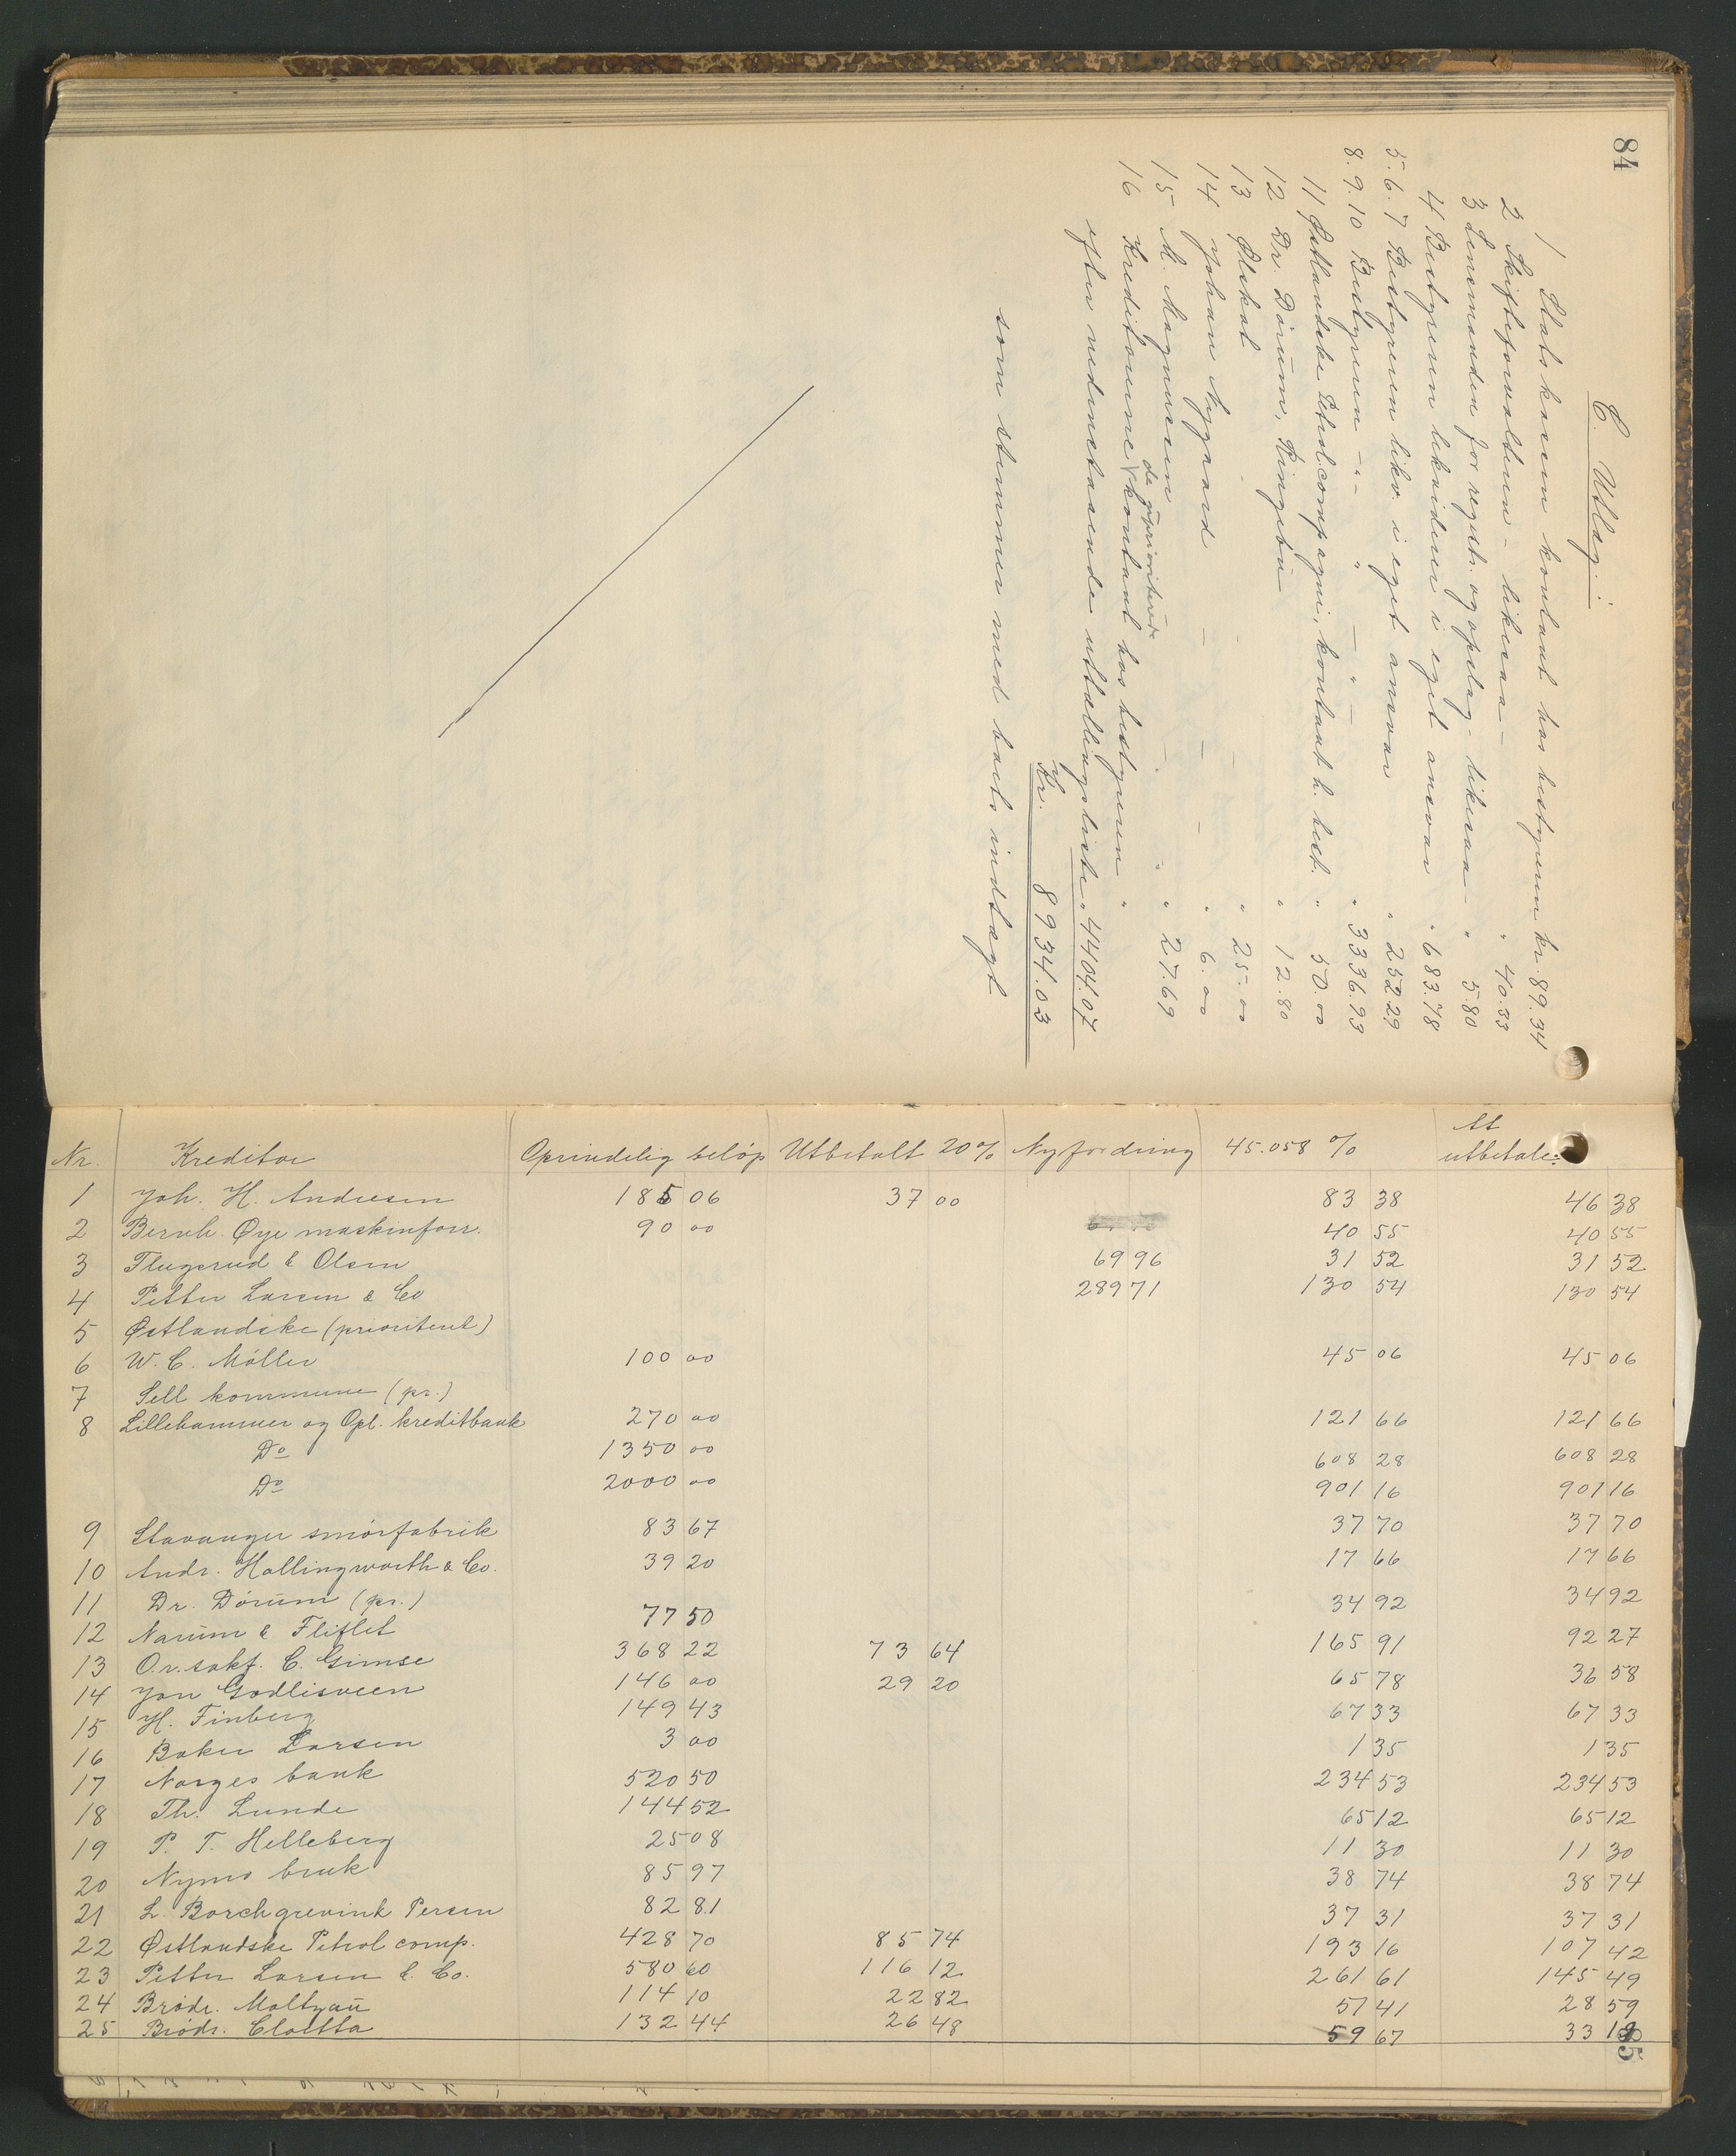 84
C. Utlæg:
1 Statskassen kontant hos bestyreren kr. 89.34
2 Skifteforvalteren - likesaa - " 40.33
3 Lensmanden for registr. og opslag - likesaa - " 5.80
4 Bestyreren likviderer i eget ansvar " 683.78
5. 6. 7 Bestyreren likv. i eget ansvar " 252.29
8. 9. 10 Bestyreren - " - " - " - " 3336.93
11 Østlandske Petrol.compagni, kontant h. best. " 50.00
12 Dr. Dørum, Ringebu " 12.80
13 - - " 25.00
14 Johan Nygaard - - - " 6.00
15 M. Magnussen - " " 27.69
16 Kreditorerne de upriorterede kontant hos bestyreren "
efter nedenstaaende uttællingsliste, " 4404.07
Kr. 8934.03
som stemmer med haves indtægt
Nr. Kreditor Oprindelig beløp Utbetalt 20% Ny fordring 45.058 % At utbetale:
1 Joh. H. Andresen 185 06 37 00 83 38 46 38
2 Bernh. Øye maskinforr. 90 00 40 55 40 55
3 Flugsrud & Olsen 69 96 31 52 31 52
4 Petter Larsen & Co 289 71 130 54 130 54
5 Østlandske (prioritert)
6 W. C. Møller 100 00 45 06 45 06
7 Sell kommune (pr.)
8 Lillehammer og Opl. kreditbank 270 00 121 66 121 66
Do 1350 00 608 28 608 28
Do 2000 00 901 16 901 16
9 Stavanger smørfabrik 83 67 37 70 37 70
10 Andr. Hollingworth & Co. 39 20 17 66 17 66
11 Dr. Dørum (pr.)
12 Narum & Fliflet 77 50 34 92 34 92
13 O.r.sakf. C. Gimse 368 22 73 64 165 91 92 27
14 Jon Godlisveen 146 00 29 20 65 78 36 58
15 H. Finberg 149 43 67 33 67 33
16 Baker Larsen 3 00 1 35 1 35
17 Norges bank 520 50 234 53 234 53
18 Th. Lunde 144 52 65 12 65 12
19 P. T. Helleberg 25 08 11 30 11 30
20 Nymo bruk 85 97 38 74 38 74
21 L. Borchgrevink Persen 82 81 37 31 37 31
22 Østlandske Petrol comp. 428 70 85 74 193 16 107 42
23 Petter Larsen & Co. 580 60 116 12 261 61 145 49
24 Brødr. Moltzau 114 10 22 82 51 41 28 59
25 Brødr. Cloetta 132 44 26 48 59 67 33 19
85